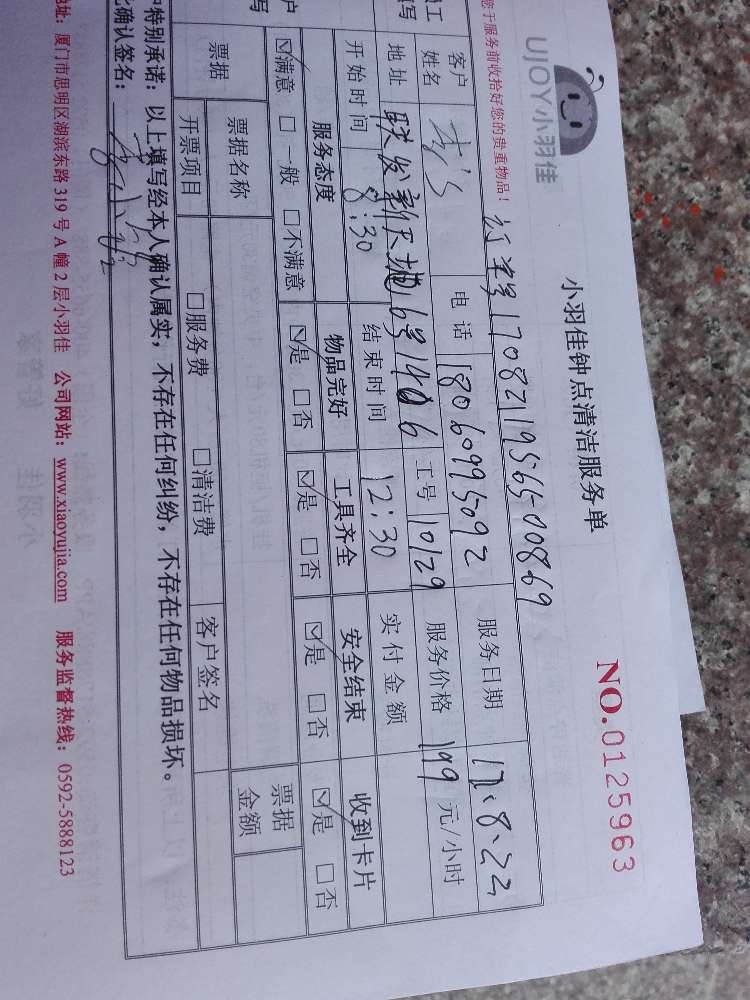 UJOY小羽佳
小羽佳钟点清洁服务单
NO.0125963
您于服务前收拾好您的贵重物品！
订单号1708211956500869
客户姓名 电话 18060995092 服务日期 17.8.22
地址 联发新天地6号1406 工号 10129 服务价格 199 元/小时
开始时间 8:30 结束时间 12:30 实付金额
服务态度 物品完好 工具齐全 安全结束 收到卡片
☑满意 □一般 □不满意 ☑是 □否 ☑是 □否 ☑是 □否 ☑是 □否
票据 票据名称 票据金额
开票项目 □服务费 □清洁费 客户签名
特别承诺：以上填写经本人确认属实，不存在任何纠纷，不存在任何物品损坏。
确认签名：
地址：厦门市思明区湖滨东路 319 号 A 幢 2 层小羽佳 公司网站：www.xiaoyujia.com 服务监督热线：0592-5888123